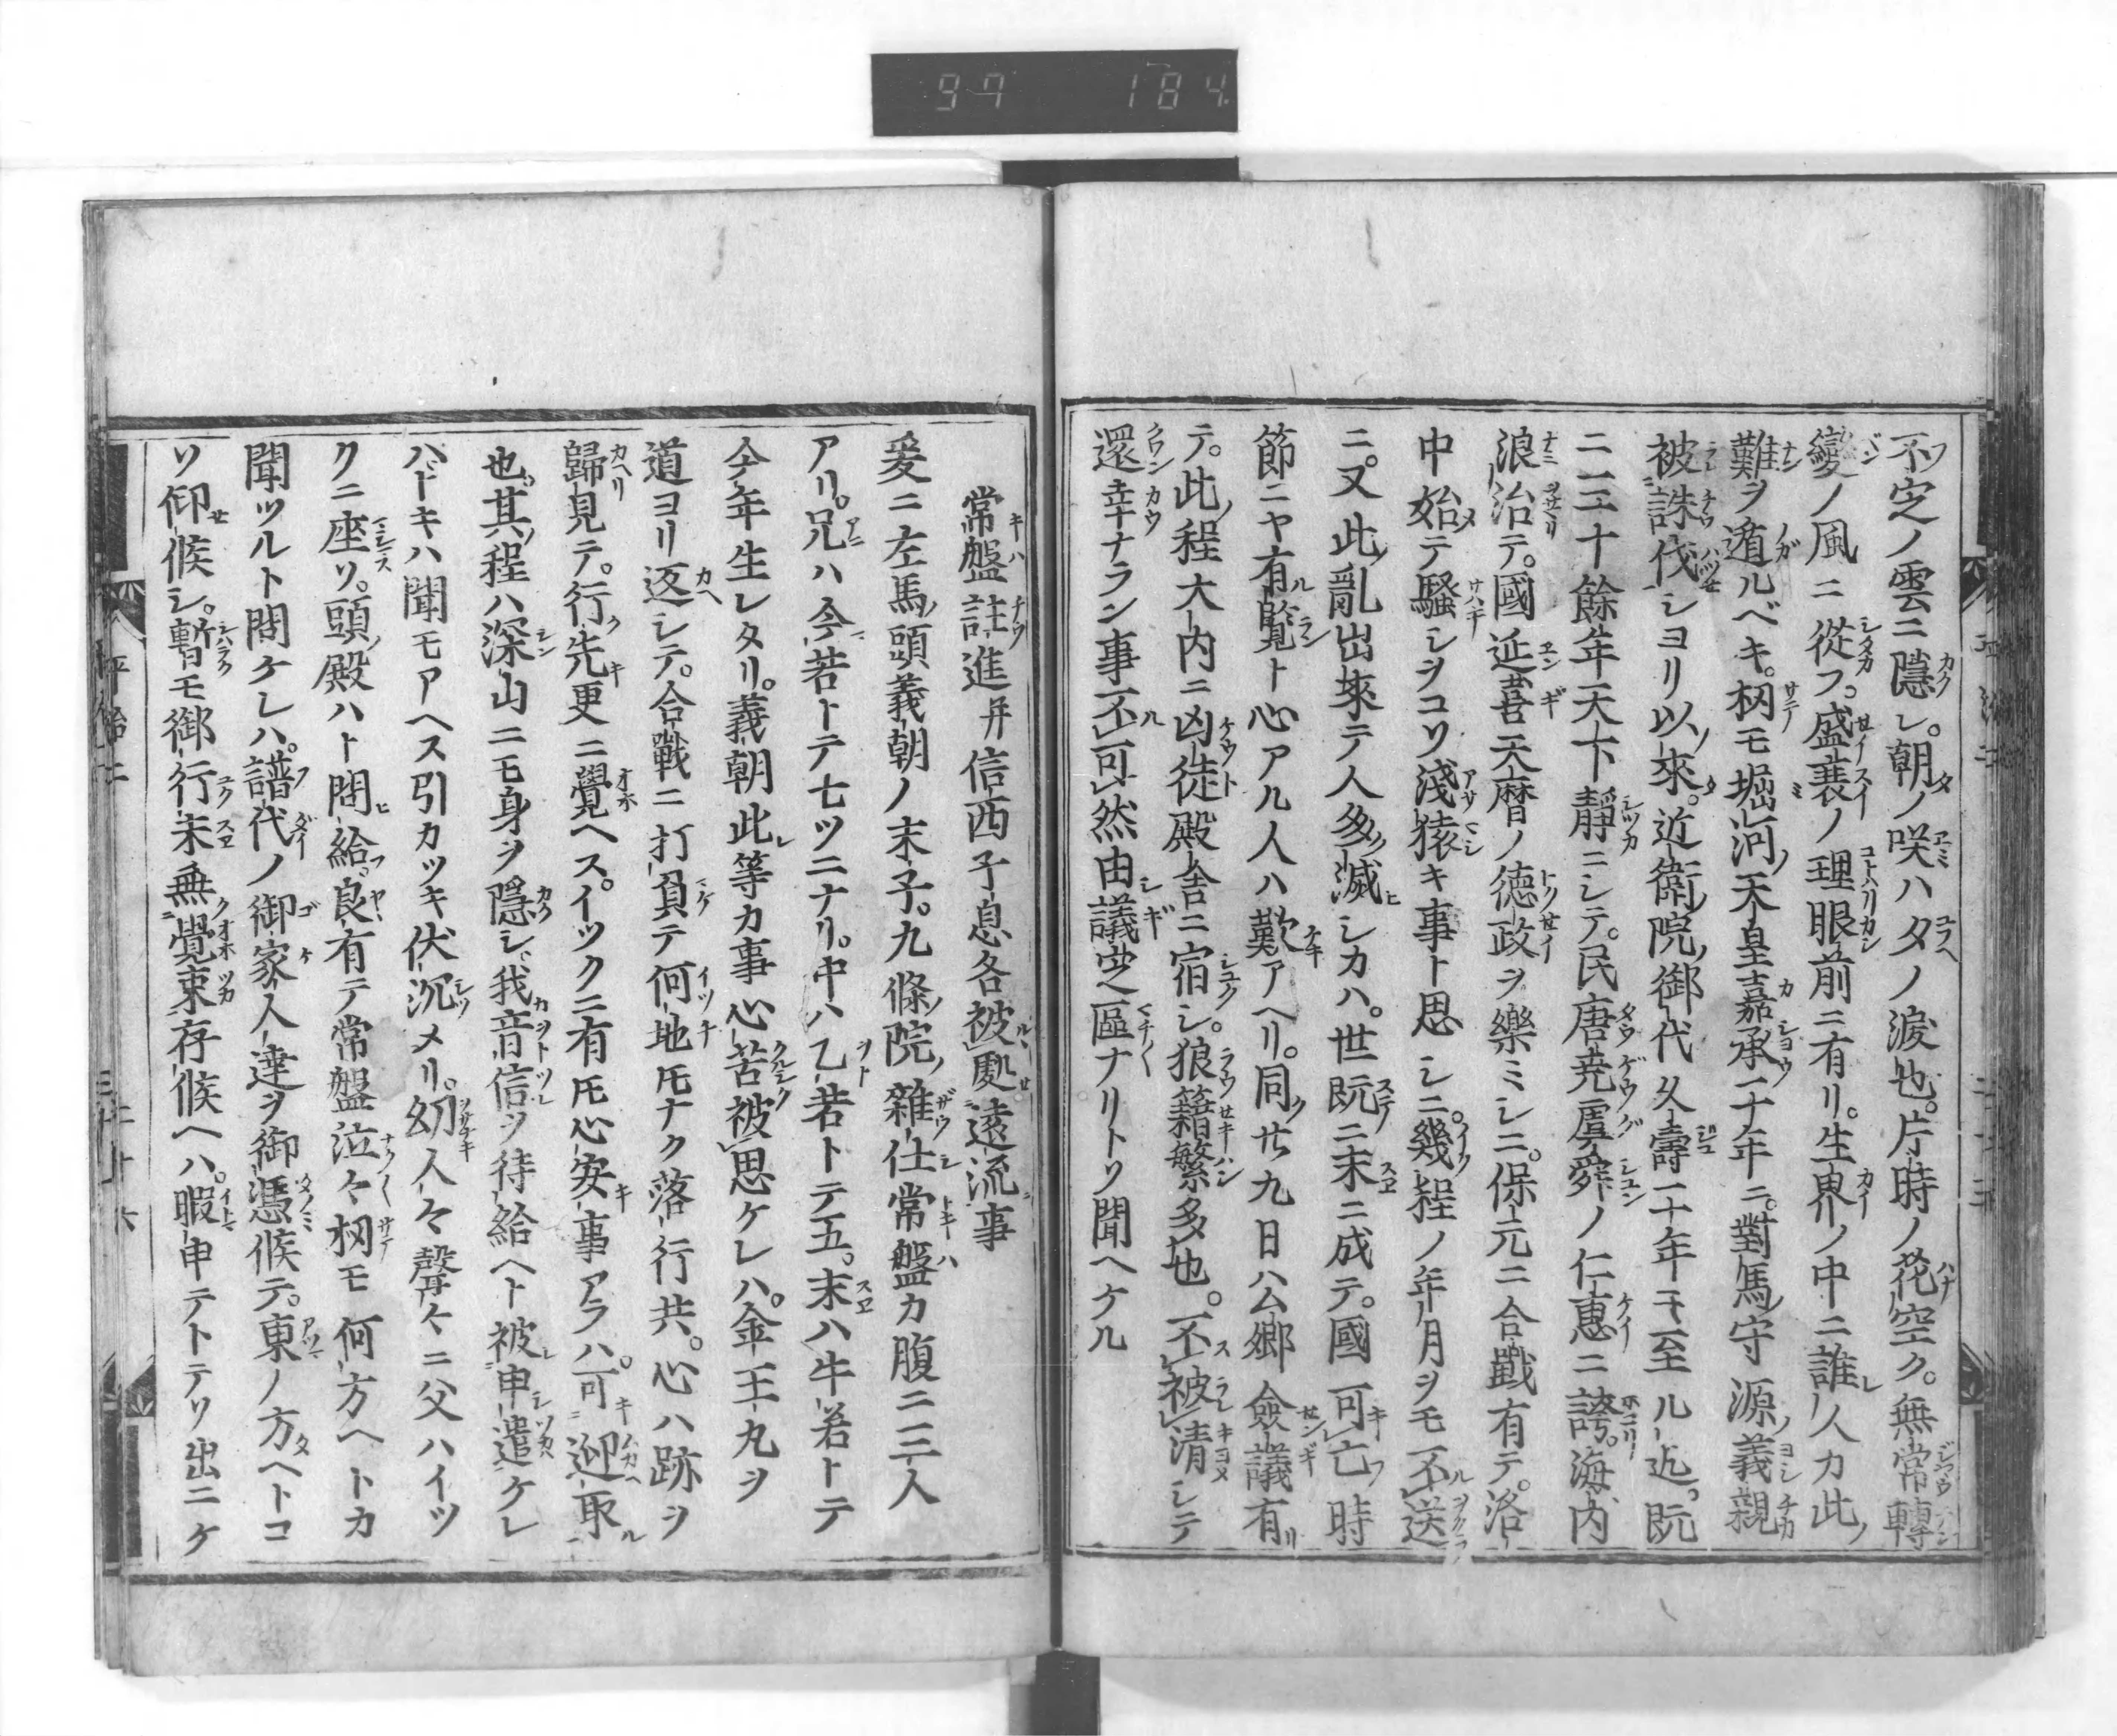 97 184
不定ノ雲ニ隱レ。朝ノ咲ハタノ淚也。片時ノ花空ク。無常轉
變ノ風ニ從フ。盛衰ノ理眼前ニ有リ。生界ノ中ニ誰人カ此
難ヲ遁ルベキ。扨モ堀河天皇嘉承二十年ニ。對馬守源義親
被誅伐シヨリ以來。近衛院御代久壽二十年ニ至ル迄。既
ニ三十餘年天下靜ニシテ。民唐堯虞舜ノ仁惠ニ誇。海内
浪治テ。國延喜天曆ノ徳政ヲ樂ミシニ。保元ニ合戰有テ。洛
中始テ騷シヲコソ淺猿キ事ト思シニ。幾程ノ年月ヲモ不送
ニ。又此亂出來テ人多滅シカハ。世既ニ末ニ成テ。國可亡時
節ニヤ有覽ト心アル人ハ歎アヘリ。同廿九日公卿僉議有
テ。此程大内ニ凶徒殿舍ニ宿シ。狼籍繁多也。不被清シテ
還幸ナラン事不可然由議定區ナリトソ聞ヘケル
常盤註進幷信西子息各被處遠流事
爰ニ左馬頭義朝ノ末子。九條院雜仕常盤カ腹ニ三人
アリ。兄ハ今若トテ七ツニナリ。中ハ乙若トテ五。末ハ牛若トテ
今年生レタリ。義朝此等カ事心苦被思ケレハ。金王丸ヲ
道ヨリ返シテ。合戰ニ打負テ何地トモナク落行共。心ハ跡ヲ
歸見テ。行先更ニ覺ヘス。イツクニ有トモ心安事アラハ。可迎取
也。其程ハ深山ニモ身ヲ隱シ。我音信ヲ待給ヘト被申遣ケレ
ハトキハ聞モアヘス引カツキ伏沉メリ。幼人々聲々ニ父ハイツ
クニ座ソ。頭殿ハト問給。良有テ常盤泣々扨モ何方ヘトカ
聞ツルト問ケレハ。譜代ノ御家人達ヲ御憑候テ。東ノ方ヘトコ
ソ仰候シ。暫モ御行末無覺束存候ヘハ。暇申テトテソ出ニケ
平治二
二十六